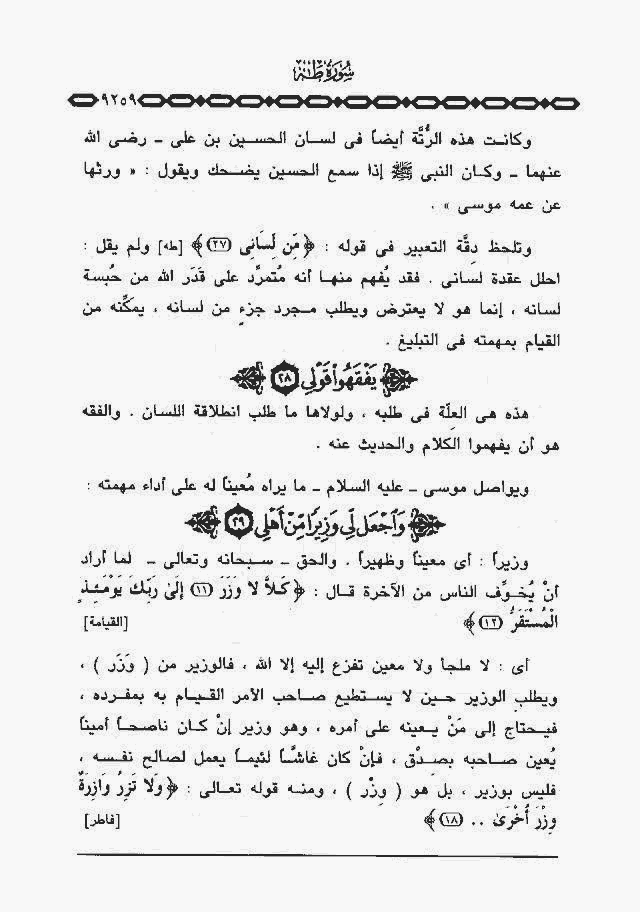 سُورَةُ طه
٩٢٥٩
وكانت هذه الرُّتَّة أيضاً فى لسان الحسين بن على ـ رضى الله
عنهما ـ وكان النبى ﷺ إذا سمع الحسين يضحك ويقول : « ورثها
عن عمه موسى » .
وتلحظ دِقَّة التعبير فى قوله : ﴿ مِّن لِّسَانِى (٢٧) ﴾ [طه] ولم يقل :
احلل عقدة لسانى . فقد يُفهم منها أنه مُتمرِّد على قَدَر الله من حُبسة
لسانه ، إنما هو لا يعترض ويطلب مجرد جزءٍ من لسانه ، يمكِّنه من
القيام بمهمته فى التبليغ .
يَفْقَهُوا قَوْلِي (٢٨)
هذه هى العِلّة فى طلبه ، ولولاها ما طلب انطلاقة اللسان . والفقه
هو أن يفهموا الكلام والحديث عنه .
ويواصل موسى ـ عليه السلام ـ ما يراه مُعيناً له على أداء مهمته :
وَاجْعَل لِّي وَزِيرًا مِّنْ أَهْلِي (٢٩)
وزيراً : أى معيناً وظهيراً . والحق ـ سبحانه وتعالى ـ لما أراد
أنْ يُخوِّف الناس من الآخرة قال : ﴿ كَلاَّ لا وَزَرَ (١١) إِلَىٰ رَبِّكَ يَوْمَئِذٍ
الْمُسْتَقَرُّ (١٢) ﴾ [القيامة]
أى : لا ملجأ ولا معين تفزع إليه إلا الله ، فالوزير من ( وَزَر ) ،
ويطلب الوزير حين لا يستطيع صاحب الأمر القيام به بمفرده ،
فيحتاج إلى مَنْ يعينه على أمره ، وهو وزير إنْ كان ناصحاً أميناً
يُعين صاحبه بصدْق ، فإنْ كان غاشّاً لئيماً يعمل لصالح نفسه ،
فليس بوزير ، بل هو ( وِزْر ) ، ومنه قوله تعالى : ﴿ وَلَا تَزِرُ وَازِرَةٌ
وِزْرَ أُخْرَىٰ .. (١٨) ﴾ [فاطر]